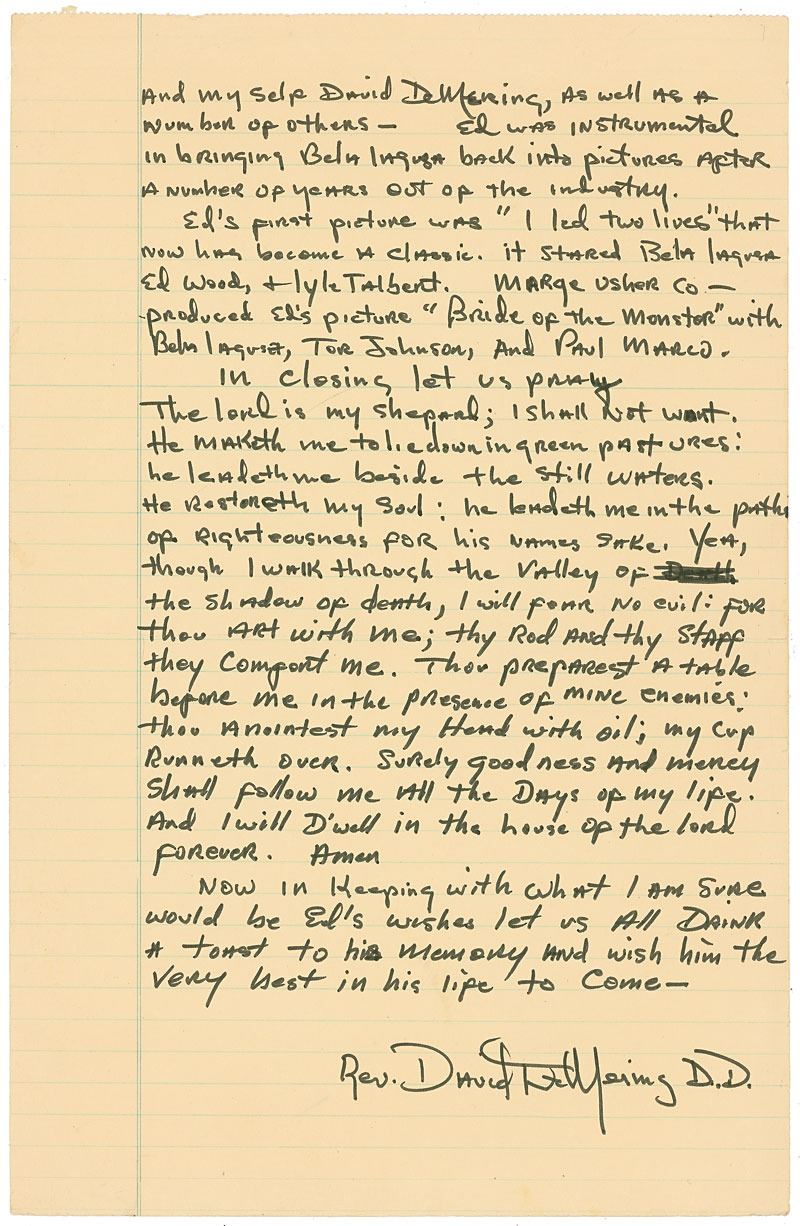 And my self David DeMering, As well as a
number of others — Ed was instrumental
in bringing Bela lagusa back into pictures after
a number of years out of the industry.
Ed's first picture was "I led two lives" that
now has become a classic. it stared Bela lagusa
Ed Wood, + lyle Talbert. Marge Usher Co —
produced Ed's picture "Bride of the Monster" with
Bela lagusa, Tor Johnson, and Paul Marco.
In closing let us pray
The lord is my shepard; I shall not want.
He maketh me to lie down in green pastures:
he leadeth me beside the still waters.
He restoreth my soul: he leadeth me in the paths
of righteousness for his names sake. Yea,
though I walk through the valley of Death
the shadow of death, I will fear no evil: for
thou art with me; thy rod and thy staff
they comfort me. Thou preparest a table
before me in the presence of mine enemies:
thou anointest my head with oil; my cup
runneth over. Surely goodness and mercy
shall follow me all the days of my life.
And I will D'well in the house of the lord
forever. Amen
Now in keeping with what I am sure
would be Ed's wishes let us all drink
a toast to his memory and wish him the
very best in his life to come—
Rev. David DeMering D.D.